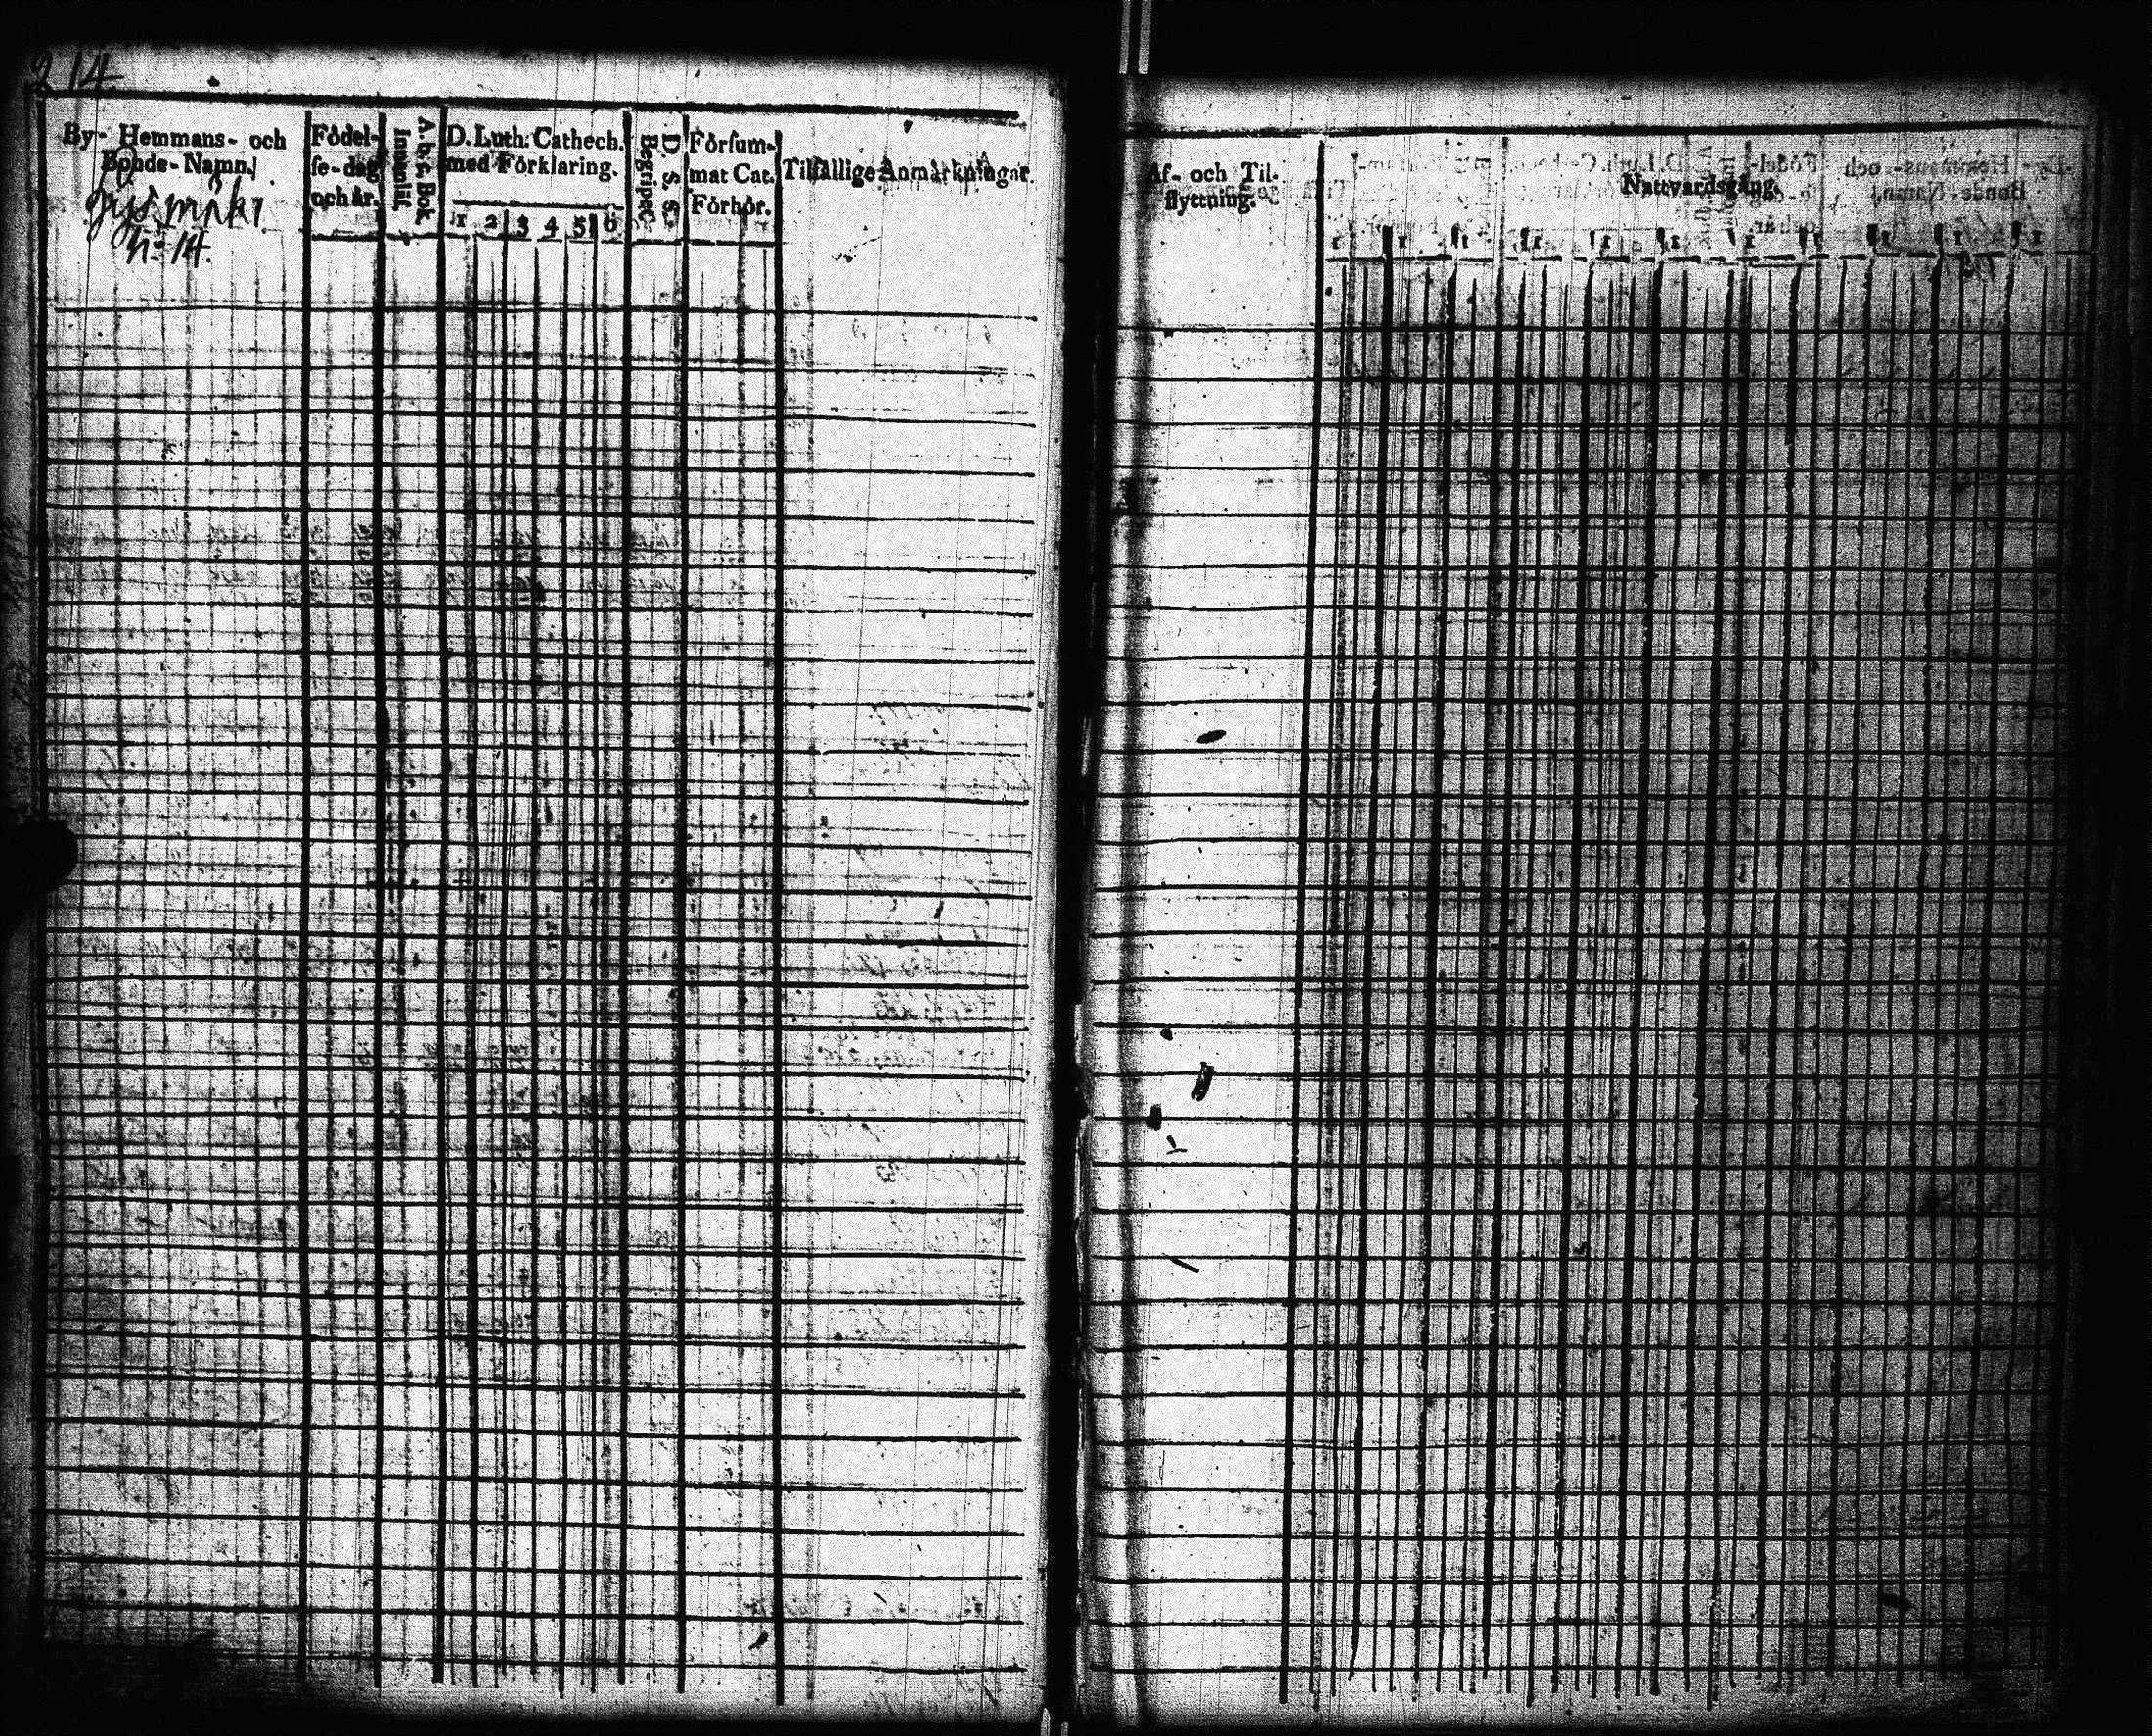 214
By- Hemmans- och
Bonde-Namn.
No 14.
Födel-
se-dag
och år.
A. b. c. Bok
Innanläs.
D. Luth. Cathech.
med Förklaring.
1 2 3 4 5 6
D. S. S.
Begripet.
Försum-
mat Cat.
Förhör.
Tilfällige Anmärkningar.
Af- och Til-
flyttning.
Nattvardsgång.